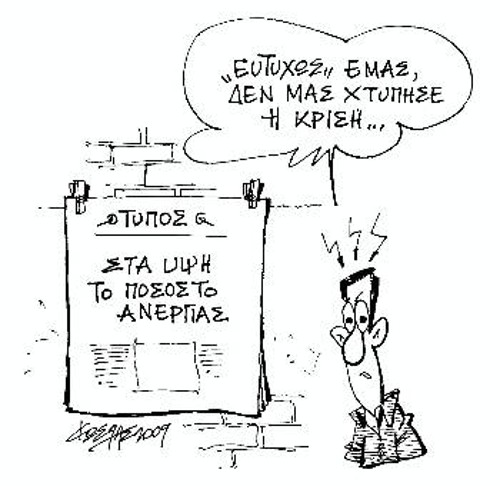 „ΕΥΤΥΧΩΣ„ ΕΜΑΣ,
ΔΕΝ ΜΑΣ ΧΤΥΠΗΣΕ
Η ΚΡΙΣΗ...
ΤΥΠΟΣ
ΣΤΑ ΥΨΗ
ΤΟ ΠΟΣΟΣΤΟ
ΑΝΕΡΓΙΑΣ
2009